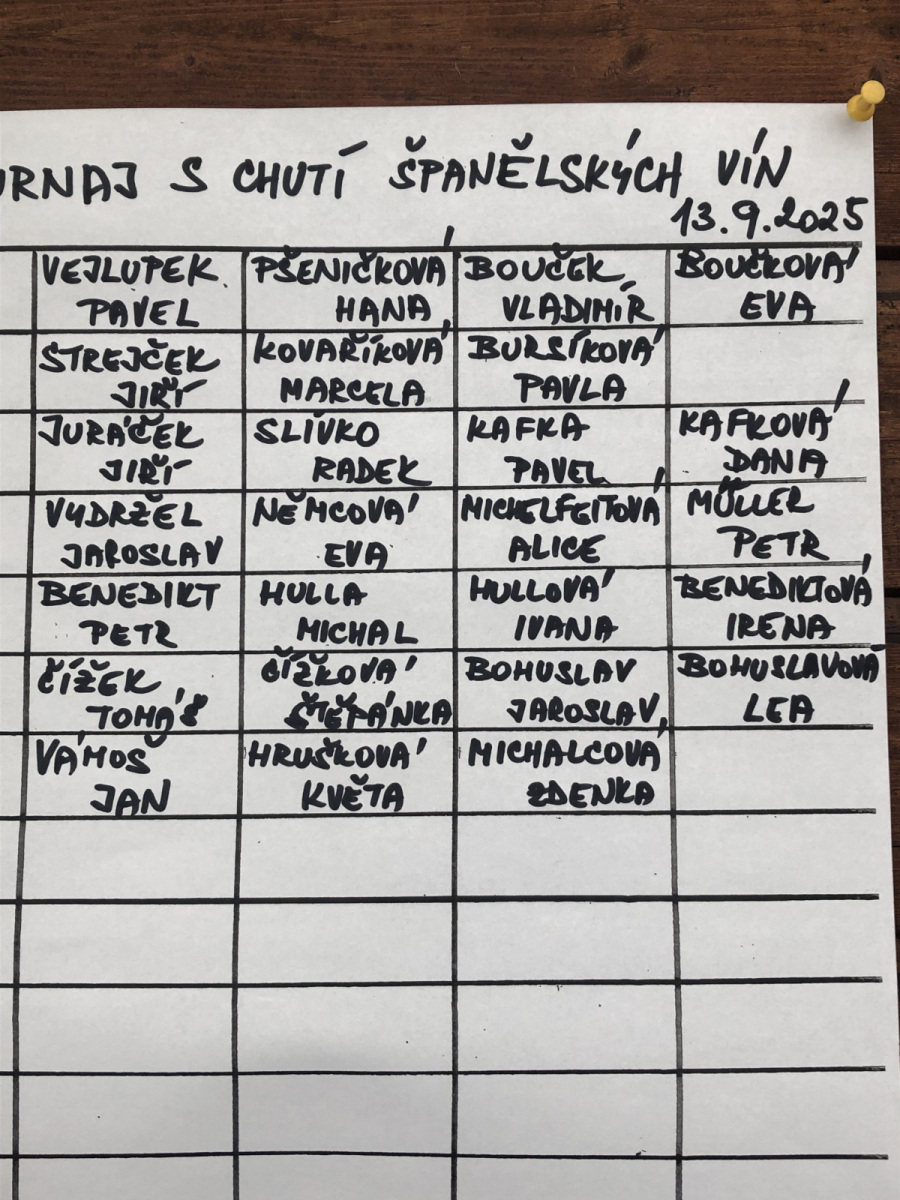 URNAJ S CHUTÍ ŠPANĚLSKÝCH VÍN
13.9.2025
VEJLUPEK PAVEL
PŠENIČKOVÁ HANA
BOUČEK VLADIMÍR
BOUČKOVÁ EVA
STREJČEK JIŘÍ
KOVAŘÍKOVÁ MARCELA
BURSÍKOVÁ PAVLA
JURÁČEK JIŘÍ
SLÍVKO RADEK
KAFKA PAVEL
KAFKOVÁ DANA
VYDRŽEL JAROSLAV
NĚMCOVÁ EVA
MICHELFEITOVÁ ALICE
MÜLLER PETR
BENEDIKT PETR
HULLA MICHAL
HULLOVÁ IVANA
BENEDIKTOVÁ IRENA
ČÍŽEK TOMÁŠ
ČÍŽKOVÁ ŠTĚPÁNKA
BOHUSLAV JAROSLAV
BOHUSLAVOVÁ LEA
VÁMOŠ JAN
HRUŠKOVÁ KVĚTA
MICHALCOVÁ ZDENKA